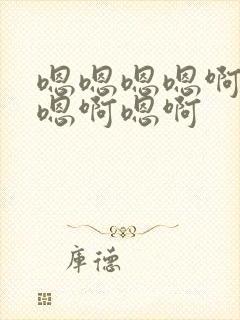 嗯嗯嗯嗯啊
嗯啊嗯啊
库德